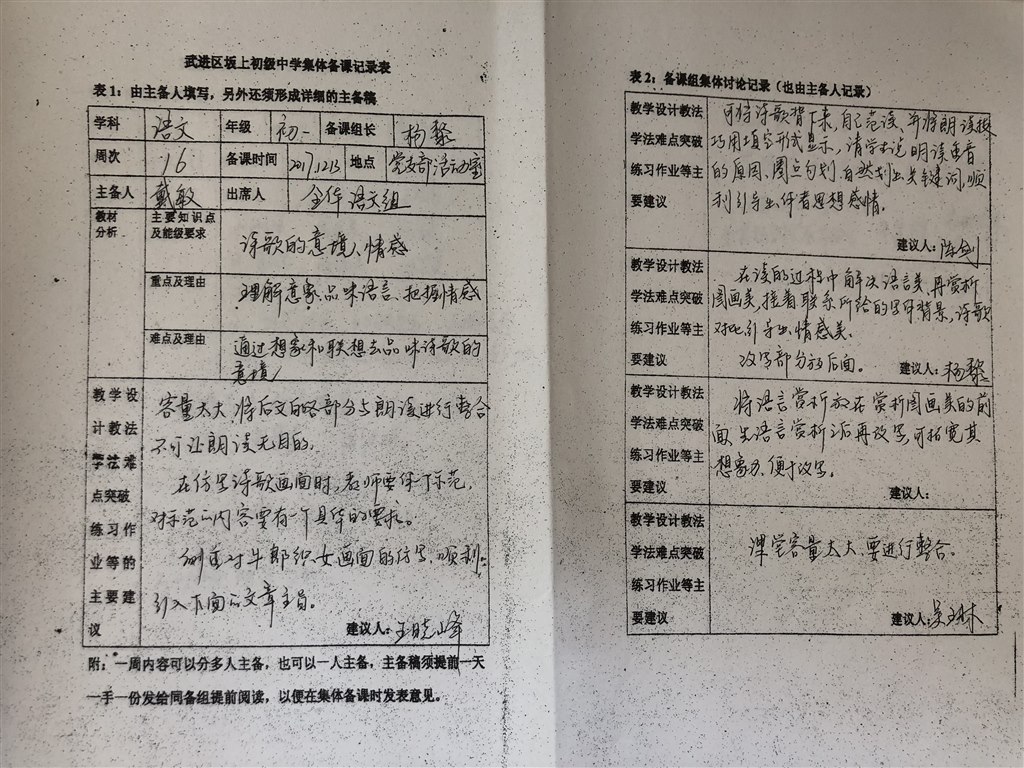 武进区坂上初级中学集体备课记录表
表1：由主备人填写，另外还须形成详细的主备稿
学科 语文 年级 初一 备课组长 杨黎
周次 16 备课时间 2017.12.13 地点 党支部活动室
主备人 戴敏 出席人 全体语文组
教材分析 主要知识点及能级要求 诗歌的意境、情感
重点及理由 理解意象、品味语言、把握情感
难点及理由 通过想象和联想去品味诗歌的
意境
教学设计教法学法难点突破练习作业等的主要建议
容量太大，将后文的略部分与朗读进行整合
不可让朗读无目的。
在仿写诗歌画面时，老师要作下示范，
对示范的内容要有一个具体的要求。
侧重对牛郎织女画面的仿写，顺利
引入下面的文章主旨。
建议人：王晓峰
附：一周内容可以分多人主备，也可以一人主备，主备稿须提前一天
一手一份发给同备组提前阅读，以便在集体备课时发表意见。
表2：备课组集体讨论记录（也由主备人记录）
教学设计教法学法难点突破练习作业等主要建议
可将诗歌背下来，自己范读，并将朗读技
巧用填空形式显示，请学生说明读重音
的原因，圈点勾划，自然划出关键词，顺
利引导出作者思想感情。
建议人：陈剑
教学设计教法学法难点突破练习作业等主要建议
在读的过程中解决语言美，再赏析
图画美，接着联系所给的写作背景，诗歌
对比引导出情感美。
改写部分放后面。
建议人：杨黎
教学设计教法学法难点突破练习作业等主要建议
将语言赏析放在赏析图画美的前
面，生语言赏析后再改写，可拓宽其
想象力，便于改写。
建议人：
教学设计教法学法难点突破练习作业等主要建议
课堂容量太大，要进行整合。
建议人：吴玉林